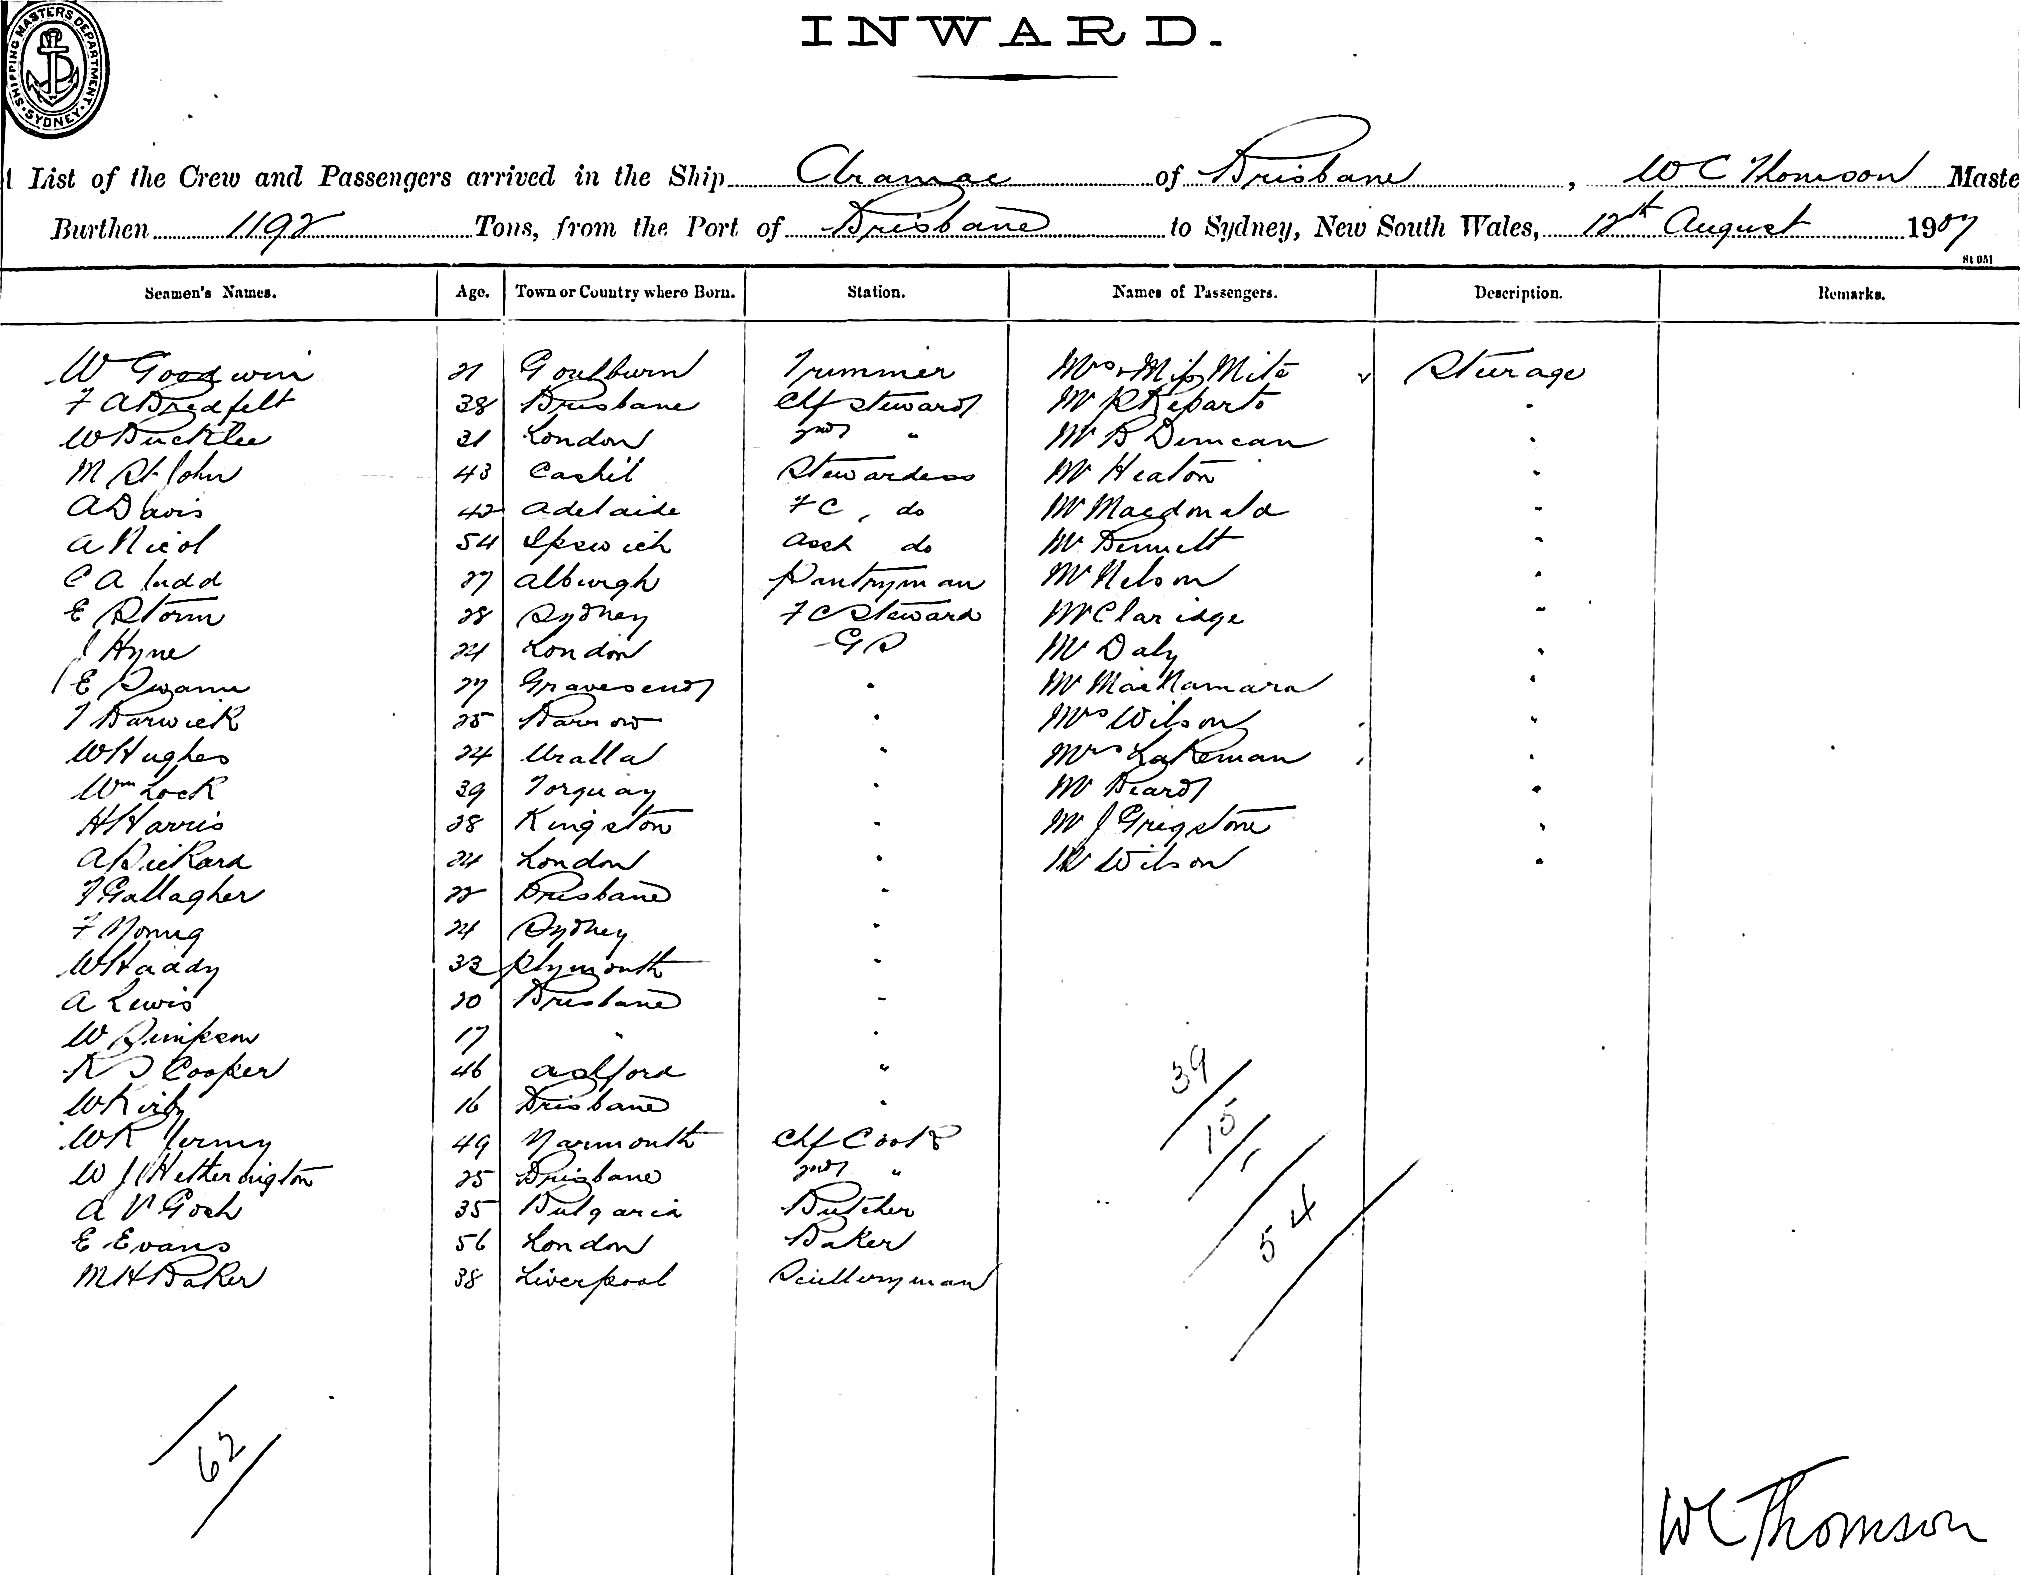 SHIPPING MASTERS DEPARTMENT. SYDNEY.
INWARD.
List of the Crew and Passengers arrived in the Ship Aramac of Brisbane, W C Thomson Maste
Burthen 1192 Tons, from the Port of Brisbane to Sydney, New South Wales, 12th August 1907
Seamen's Names. Age. Town or Country where Born. Station. Names of Passengers. Description. Remarks.
W Goodwin 21 Goulburn Trimmer Mrs + Miss Mite Sturage
F A Bredfelt 38 Brisbane Chf Steward Mr R Reparto "
W Bucktlee 31 London 2nd " Mr B Duncan "
M St John 43 Cashil Stewardess Mr Heaton "
A Davis 42 Adelaide F C, do Mr Macdonald "
A Nicol 54 Ipswich Asst do Mr Bennett "
C A Judd 27 Alburgh Pantryman Mr Nelson "
E Storm 28 Sydney F C Steward Mr Claridge "
J Hyne 24 London G S Mr Daly "
E Swann 27 Gravesend " Mr MacNamara "
T Barwick 25 Barrow " Mrs Wilson "
W Hughes 24 Uralla " Mrs Lakeman "
Wm Lock 39 Torquay " Mr Beard "
H Harris 28 Kingston " Mr J Grigstone "
A Pickard 24 London " Mr Wilson "
T Gallagher 22 Brisbane "
F Young 24 Sydney "
W Haddy 33 Plymouth "
A Lewis 20 Brisbane "
W Simpson 17 " "
R S Cooper 46 Ashford "
W Kirby 16 Brisbane "
W R Jermy 49 Yarmouth Chf Cook
W J Hetherington 25 Brisbane 2nd "
A V Goch 35 Bulgaria Butcher
E Evans 56 London Baker
M H Baker 38 Liverpool Sculleryman
39/
15/
54/
/62/
W C Thomson